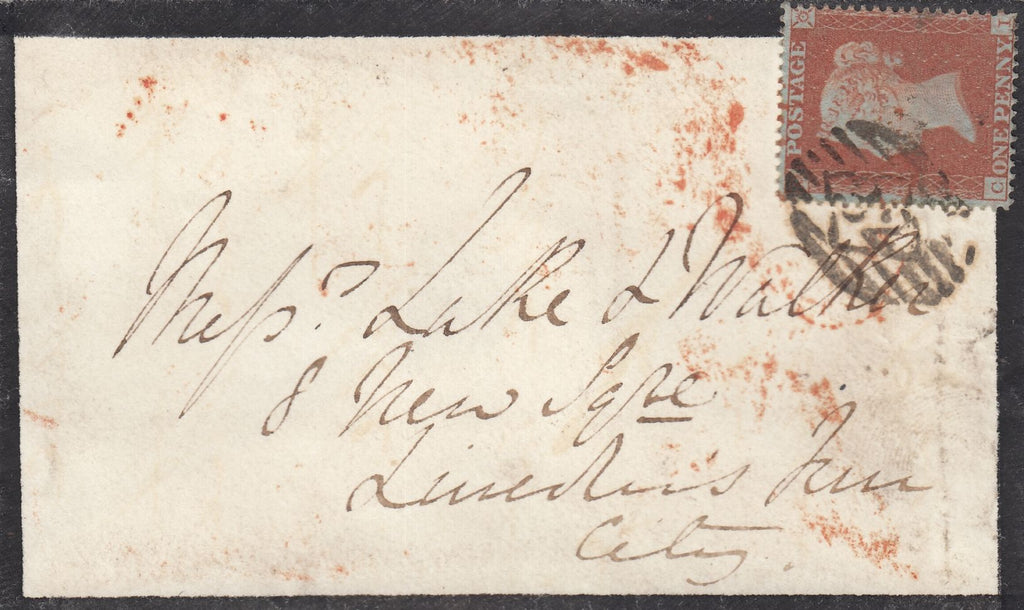 POSTAGE
ONE PENNY
I
C
Mess.rs Lake & Walker
8 New Sqre
Lincoln's Inn
City.